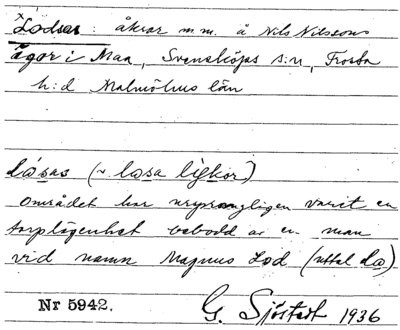 ×Lödsas: åkrar m.m. å Nils Nilssons
ägor i Maa, Svensköps s:n, Frosta
h:d Malmöhus län
lósas (~ losa ligkor)
området har ursprungligen varit en
torplägenhet bebodd av en man
vid namn Magnus Lod (uttal lo)
Nr 5942.
G. Sjöstedt 1936